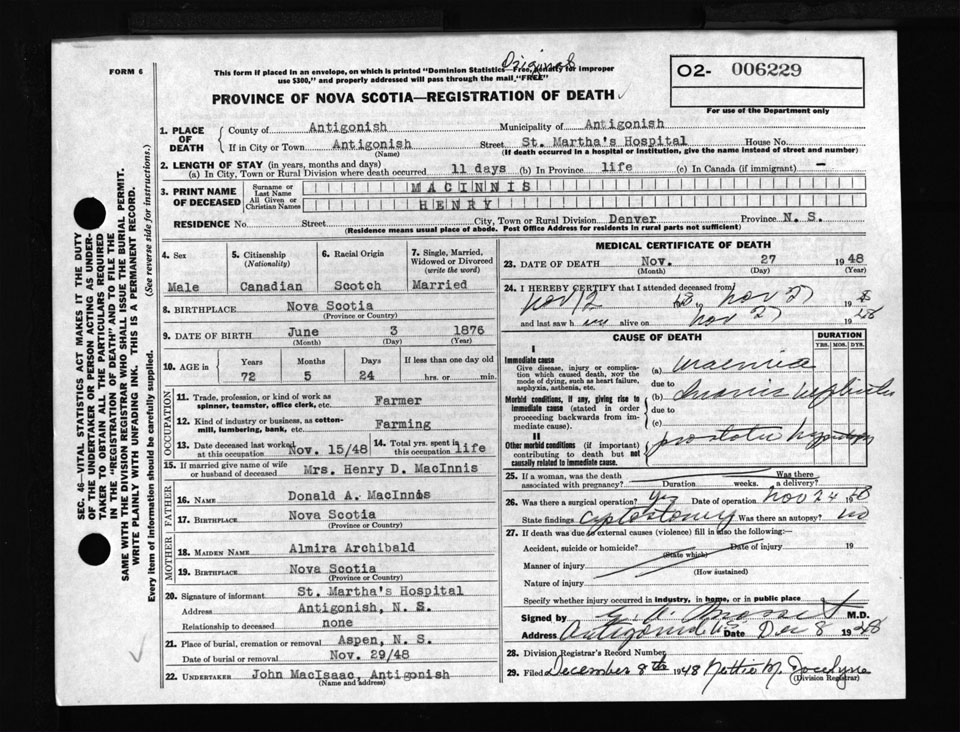 FORM 6
Original
This form if placed in an envelope, on which is printed "Dominion Statistics—Free, penalty for improper
use $300," and properly addressed will pass through the mail "FREE"
02- 006229
For use of the Department only
PROVINCE OF NOVA SCOTIA—REGISTRATION OF DEATH
1. PLACE OF DEATH
County of Antigonish Municipality of Antigonish
If in City or Town Antigonish Street St. Martha's Hospital House No.
(Name) (If death occurred in a hospital or institution, give the name instead of street and number)
2. LENGTH OF STAY (in years, months and days)
(a) In City, Town or Rural Division where death occurred 11 days (b) In Province life (c) In Canada (if immigrant) -
3. PRINT NAME OF DECEASED
Surname or Last Name MACINNIS
All Given or Christian Names HENRY
RESIDENCE No. Street City, Town or Rural Division Denver Province N. S.
(Residence means usual place of abode. Post Office Address for residents in rural parts not sufficient)
4. Sex
Male
5. Citizenship
(Nationality)
Canadian
6. Racial Origin
Scotch
7. Single, Married,
Widowed or Divorced
(write the word)
Married
8. BIRTHPLACE Nova Scotia
(Province or Country)
9. DATE OF BIRTH June 3 1876
(Month) (Day) (Year)
10. AGE in
Years Months Days If less than one day old
72 5 24 hrs. or min.
OCCUPATION
11. Trade, profession, or kind of work as
spinner, teamster, office clerk, etc. Farmer
12. Kind of industry or business, as cotton-
mill, lumbering, bank, etc. Farming
13. Date deceased last worked
at this occupation Nov. 15/48
14. Total yrs. spent in
this occupation life
15. If married give name of wife
or husband of deceased Mrs. Henry D. MacInnis
FATHER
16. NAME Donald A. MacInnis
17. BIRTHPLACE Nova Scotia
(Province or Country)
MOTHER
18. MAIDEN NAME Almira Archibald
19. BIRTHPLACE Nova Scotia
(Province or Country)
20. Signature of informant St. Martha's Hospital
Address Antigonish, N. S.
Relationship to deceased none
21. Place of burial, cremation or removal Aspen, N. S.
Date of burial or removal Nov. 29/48
22. UNDERTAKER John MacIsaac, Antigonish
(Name and address)
MEDICAL CERTIFICATE OF DEATH
23. DATE OF DEATH Nov. 27 1948
(Month) (Day) (Year)
24. I HEREBY CERTIFY that I attended deceased from
Nov 12 48 to Nov 27 1948
and last saw him alive on Nov 27 1948
CAUSE OF DEATH
DURATION
YRS. MOS. DYS.
I
Immediate cause
Give disease, injury or complica-
tion which caused death, not the
mode of dying, such as heart failure,
asphyxia, asthenia, etc.
(a) Uraemia
due to
Morbid conditions, if any, giving rise to
immediate cause (stated in order
proceeding backwards from im-
mediate cause).
(b) Chronic Nephritis
due to
(c)
II
Other morbid conditions (if important)
contributing to death but not
causally related to immediate cause.
prostatic
25. If a woman, was the death
associated with pregnancy? Duration weeks. Was there
a delivery?
26. Was there a surgical operation? Yes Date of operation Nov 24 1948
State findings Cystostomy Was there an autopsy? no
27. If death was due to external causes (violence) fill in also the following:—
Accident, suicide or homicide? Date of injury 19
(State which)
Manner of injury
(How sustained)
Nature of injury
Specify whether injury occurred in industry, in home, or in public place
Signed by M.D.
Address Antigonish NS Date Dec 8 1948
28. Division Registrar's Record Number
29. Filed December 8th 1948 Nettie M.
(Division Registrar)
SEC. 46—VITAL STATISTICS ACT MAKES IT THE DUTY
OF THE UNDERTAKER OR PERSON ACTING AS UNDER-
TAKER TO OBTAIN ALL THE PARTICULARS REQUIRED
IN THE "REGISTRATION OF DEATH" AND TO FILE THE
SAME WITH THE DIVISION REGISTRAR WHO SHALL ISSUE THE BURIAL PERMIT.
WRITE PLAINLY WITH UNFADING INK. THIS IS A PERMANENT RECORD.
Every item of information should be carefully supplied. (See reverse side for instructions.)